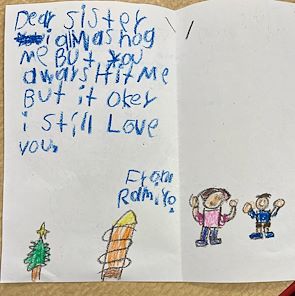 Dear sister
i am as nog
me But you
awars Hit me
But it oker
i Still Love
you.
From
Ramiyo.